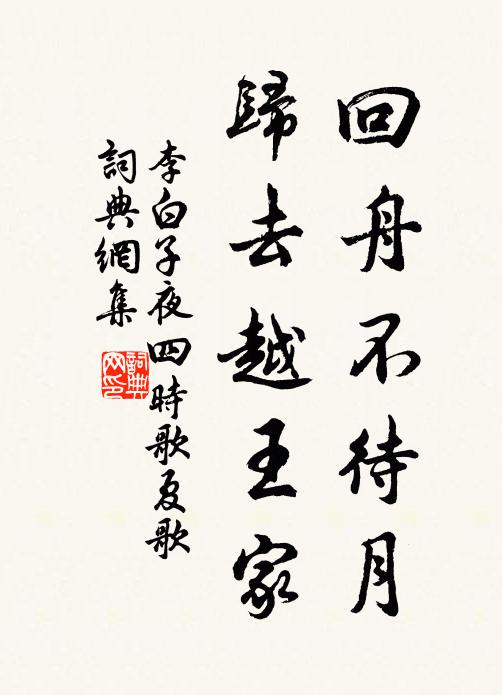 回舟不待月
歸去越王家
李白子夜四時歌夏歌
詞典網集
詞典
网印